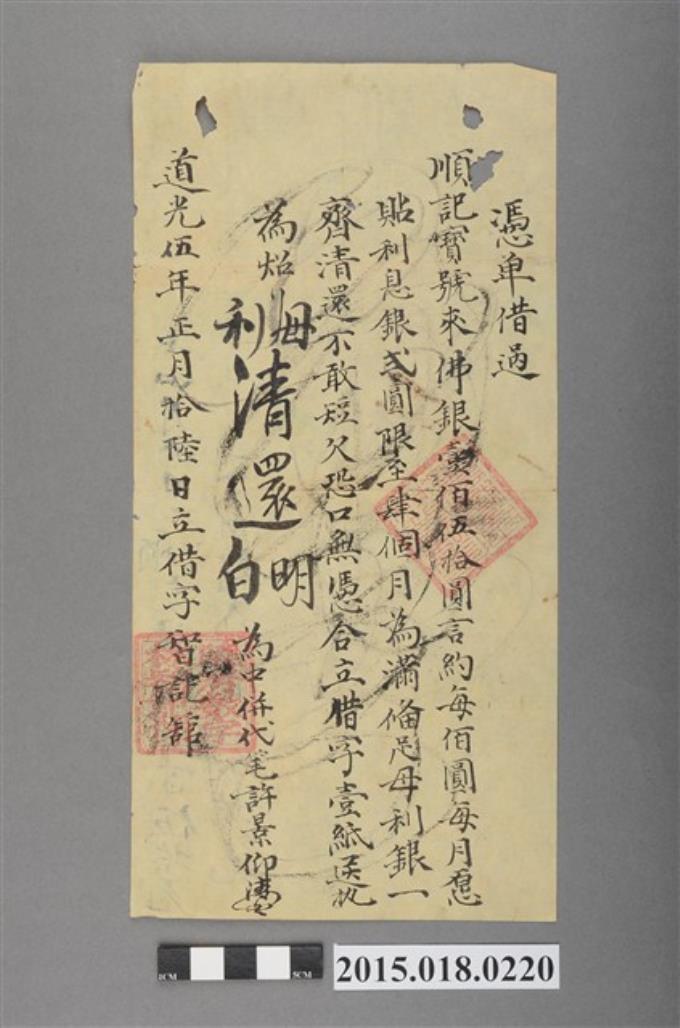 憑单借過
順記寶號來佛銀壹佰伍拾圓言約每佰圓每月愿
貼利息銀弍圓限至肆個月為滿俻足母利銀一
齊清還不敢短欠恐口無憑合立借字壹紙送执
為炤
母利清還明白
為中併代笔許景仰
道光伍年正月拾陸日立借字智記舘
1CM
5CM
2015.018.0220